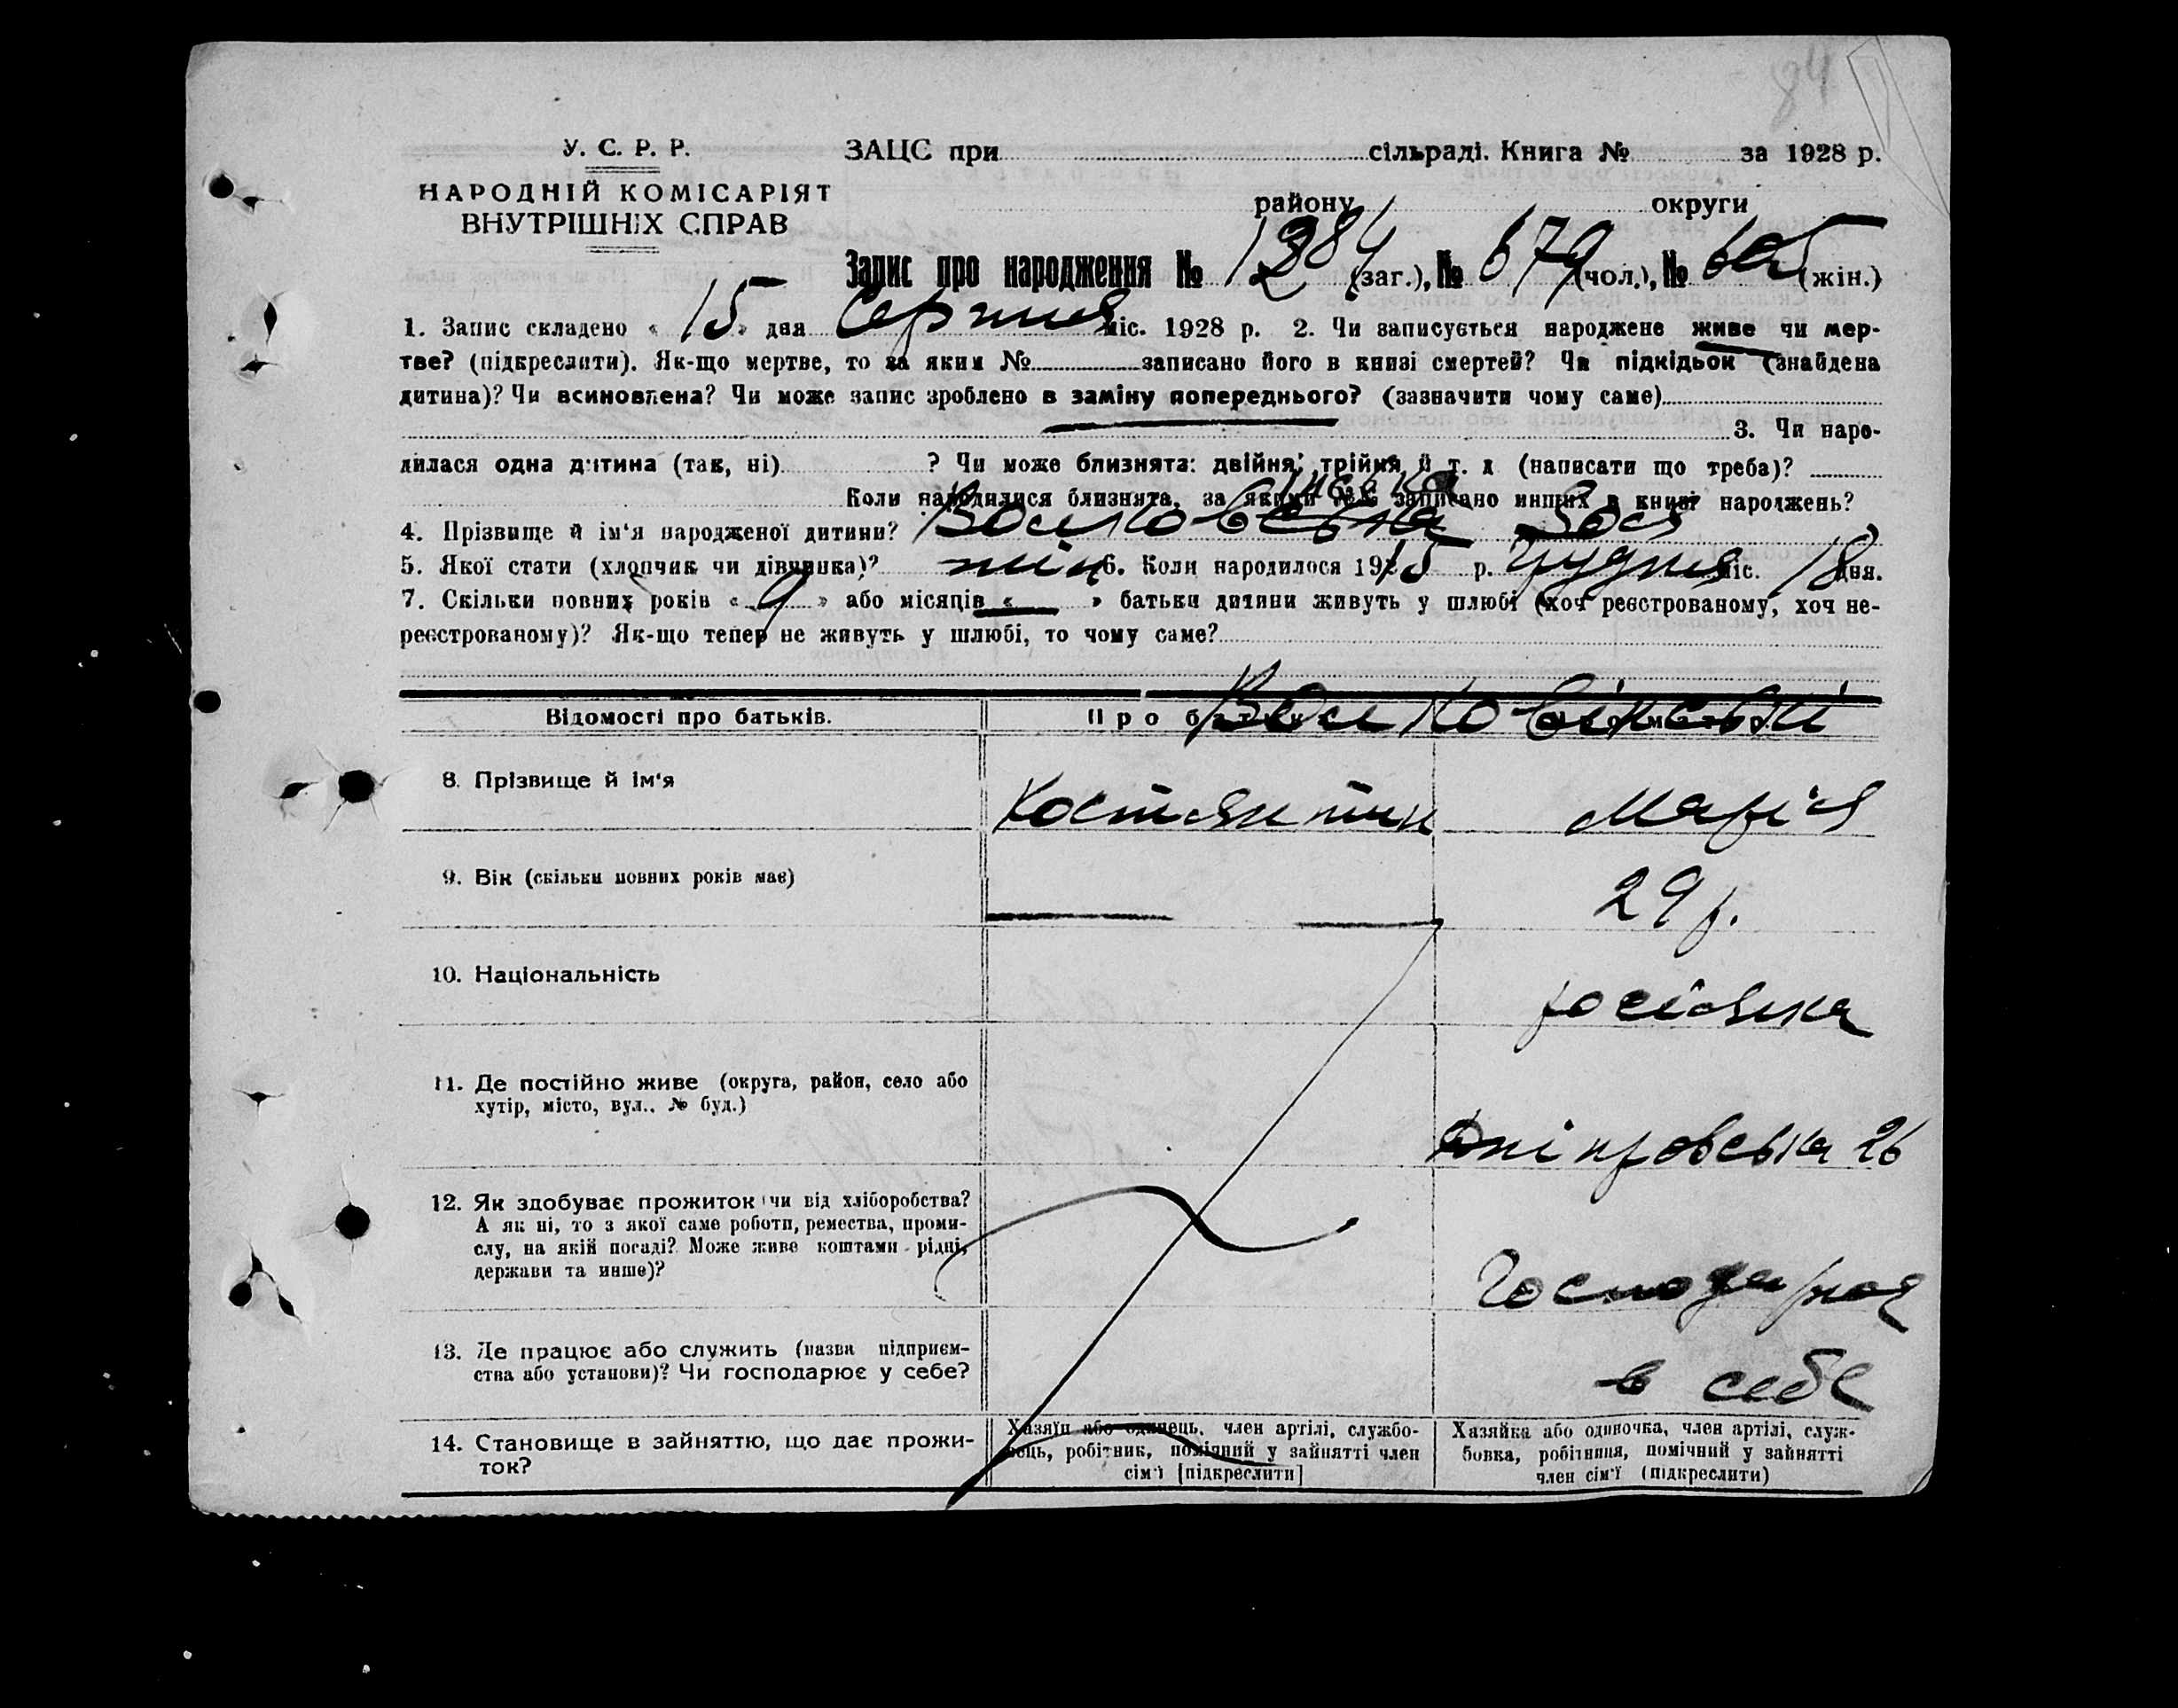 84
У. С. Р. Р.
НАРОДНІЙ КОМІСАРІЯТ
ВНУТРІШНІХ СПРАВ
ЗАЦС при сільраді. Книга № за 1928 р.
району округи
Запис про народження № 1284 (заг.), № 679 (чол.), № 605 (жін.)
1. Запис складено « 15 » дня Серпня міс. 1928 р. 2. Чи записується народжене живе чи мер-
тве? (підкреслити). Як-що мертве, то за яким № записано його в книзі смертей? Чи підкідьок (знайдена
дитина)? Чи всиновлена? Чи може запис зроблено в заміну попереднього? (зазначити чому саме)
3. Чи наро-
дилася одна дитина (так, ні) ? Чи може близнята: двійня, трійня й т. д (написати що треба)?
Коли народилися близнята, за якими №№ записано инших в книзі народжень?
4. Прізвище й ім'я народженої дитини? Зоя
5. Якої стати (хлопчик чи дівчинка)? жін 6. Коли народилося 1915 р. Грудня міс. 18 дня.
7. Скільки повних років « 9 » або місяців « — » батьки дитини живуть у шлюбі (хоч реєстрованому, хоч не-
реєстрованому)? Як-що тепер не живуть у шлюбі, то чому саме?
Відомості про батьків. Про батька Про матір
Войковінські
8. Прізвище й ім'я Костянтин Марія
9. Вік (скільки повних років має) — — 29 р.
10. Національність росіянка
11. Де постійно живе (округа, район, село або
хутір, місто, вул., № буд.) Дніпровська 26
12. Як здобуває прожиток чи від хліборобства?
А як ні, то з якої саме роботи, ремества, проми-
слу, на якій посаді? Може живе коштами рідні,
держави та инше)? Господарка
13. Де працює або служить (назва підприєм-
ства або установи)? Чи господарює у себе? в себе
14. Становище в зайняттю, що дає прожи-
ток?
Хазяїн або одинець, член артілі, службо-
вець, робітник, помічний у зайнятті член
сім'ї [підкреслити]
Хазяйка або одиночка, член артілі, служ-
бовка, робітниця, помічний у зайнятті
член сім'ї (підкреслити)